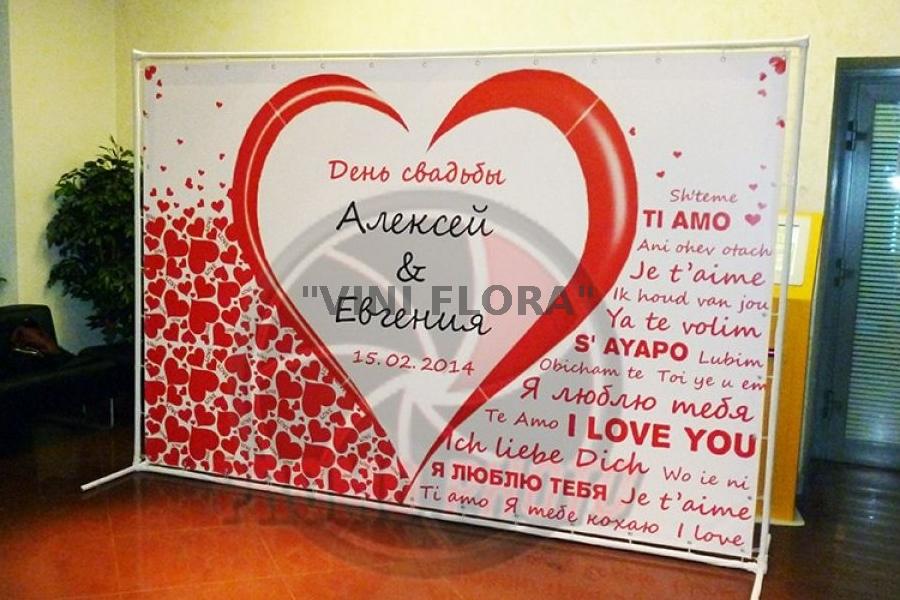 День свадьбы
Алексей
&
"VINI FLORA"
Евгения
15.02.2014
Sh'teme
TI AMO
Ani ohev otach
Je t'aime
Ik houd van jou
Ya te volim
S' AYAPO Lubim
Obicham te Toi ye u em
Я люблю тебя
Te Amo I LOVE YOU
Ich liebe Dich Wo ie ni
Я ЛЮБЛЮ ТЕБЯ Je t'aime
Ti amo Я тебе кохаю I love